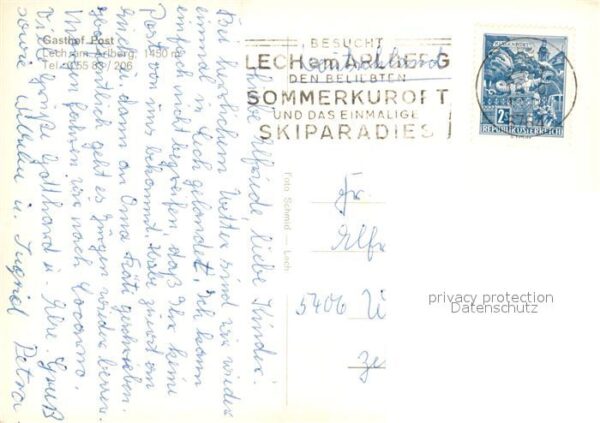 Gasthof Post
Lech am Arlberg, 1450 m
Tel. 0 55 83 / 206
BESUCHT
LECH am ARLBERG
DEN BELIEBTEN
SOMMERKURORT
UND DAS EINMALIGE
SKIPARADIES
2
REPUBLIK ÖSTERREICH
Foto Schmid — Lech
Liebe Elfriede, liebe Kinder!
Bei herrlichem Wetter sind wir wieder
einmal in Lech gelandet. Ich kann
einfach nicht begreifen, daß Ihr keine
Post von uns bekommt. Habe zuerst an
dann an Oma
geht es Jürgen wieder besser.
fahren wir nach Locarno.
Viele Grüße Gotthard u.
sowie Wilhelm u. Ingrid Petra
Fr.
Elfr
5406
privacy protection
Datenschutz